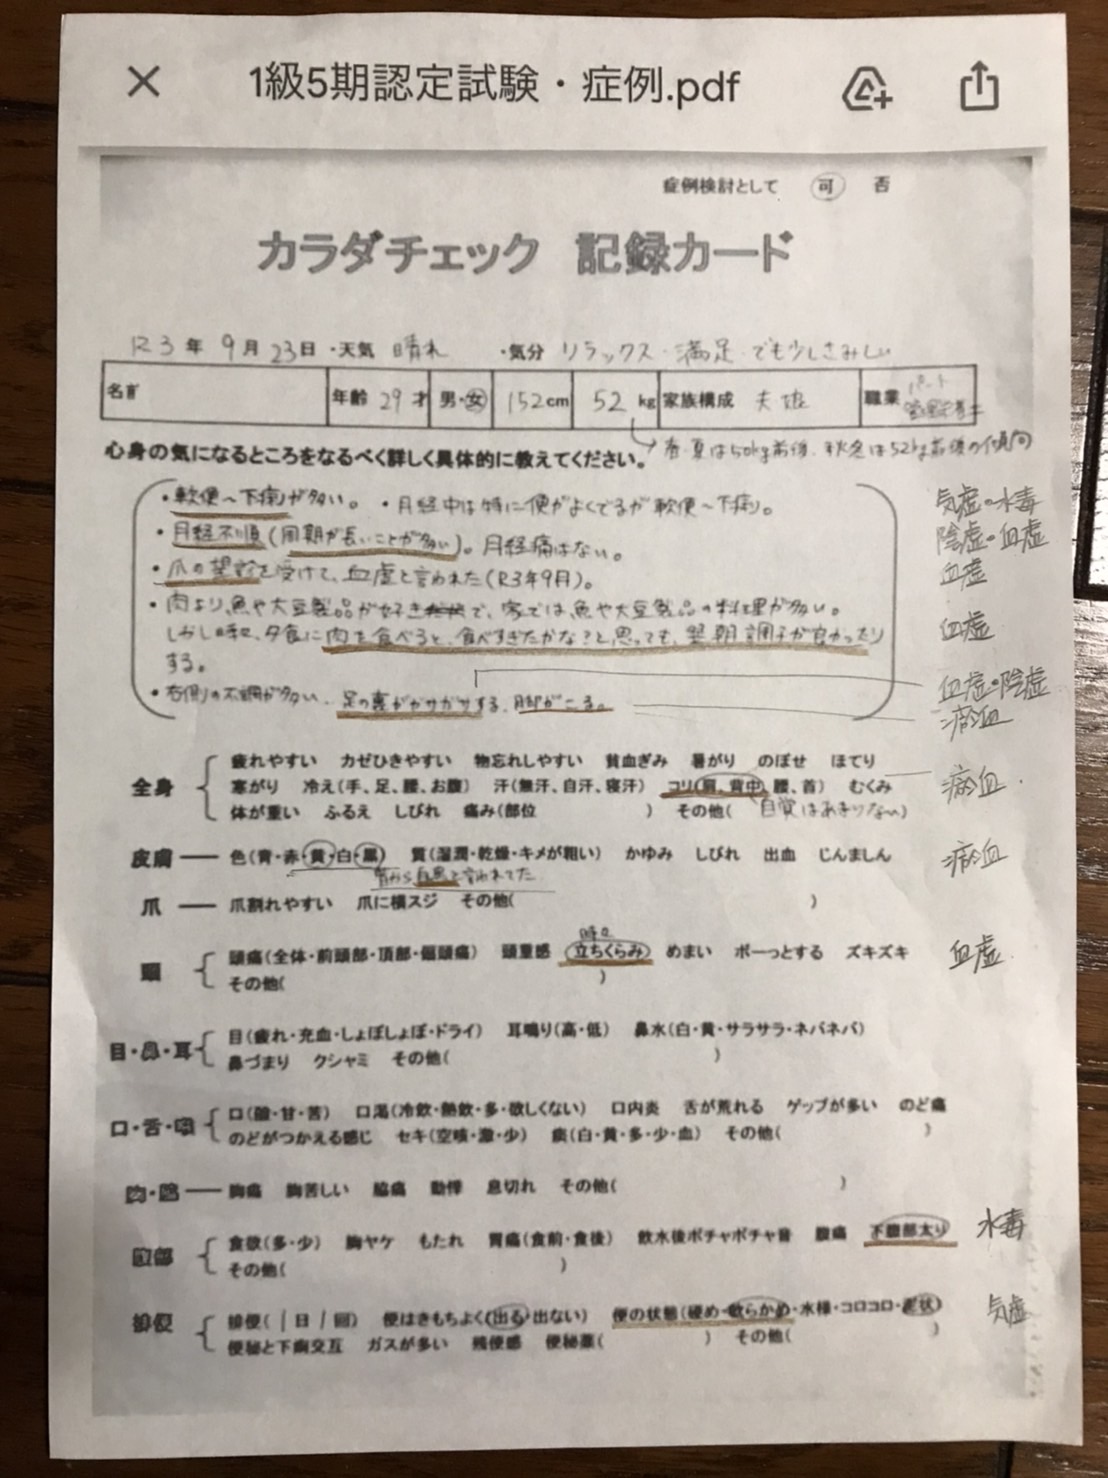 1級5期認定試験・症例.pdf
症例検討として 可 否
カラダチェック 記録カード
R3年 9月 23日 ・天気 晴れ ・気分 リラックス・満足・でも少しさみしい
名前 年齢 29才 男・女 152cm 52kg 家族構成 夫 職業 パート
春・夏は50kg前後、秋冬は52kg前後の傾向
心身の気になるところをなるべく詳しく具体的に教えてください。
・軟便〜下痢が多い。 ・月経中は特に便がよくでるが軟便〜下痢。 気虚・水毒
・月経不順(周期が長いことが多い)。月経痛はない。 陰虚・血虚
・爪の望診を受けて、血虚と言われた(R3年9月)。 血虚
・肉より、魚や大豆製品が好きで、家では魚や大豆製品の料理が多い。
しかし時々、夕食に肉を食べると、食べすぎたかな?と思っても、翌朝調子が良かったり 血虚
する。
・右側の不調が多い 足の裏がガサガサする、脚がこる。 血虚・陰虚
瘀血
全身 疲れやすい カゼひきやすい 物忘れしやすい 貧血ぎみ 暑がり のぼせ ほてり
寒がり 冷え(手、足、腰、お腹) 汗(無汗、自汗、寝汗) コリ(肩、背中、腰、首) むくみ 瘀血
体が重い ふるえ しびれ 痛み(部位 ) その他( 自覚はあまりない)
皮膚 色(青・赤・黄・白・黒) 質(湿潤・乾燥・キメが粗い) かゆみ しびれ 出血 じんましん 瘀血
昔から色黒と言われてた
爪 爪割れやすい 爪に横スジ その他( )
時々
頭 頭痛(全体・前頭部・頂部・偏頭痛) 頭重感 立ちくらみ めまい ボーっとする ズキズキ 血虚
その他( )
目・鼻・耳 目(疲れ・充血・しょぼしょぼ・ドライ) 耳鳴り(高・低) 鼻水(白・黄・サラサラ・ネバネバ)
鼻づまり クシャミ その他( )
口・舌・咽 口(酸・甘・苦) 口渇(冷飲・熱飲・多・欲しくない) 口内炎 舌が荒れる ゲップが多い のど痛
のどがつかえる感じ セキ(空咳・激・少) 痰(白・黄・多・少・血) その他( )
胸・脇 胸痛 胸苦しい 脇痛 動悸 息切れ その他( )
腹部 食欲(多・少) 胸ヤケ もたれ 胃痛(食前・食後) 飲水後ポチャポチャ音 腹痛 下腹部太り 水毒
その他( )
排便 排便( 1日 1回) 便はきもちよく(出る・出ない) 便の状態(硬め・軟らかめ・水様・コロコロ・泥状) 気虚
便秘と下痢交互 ガスが多い 残便感 便秘薬( ) その他( )